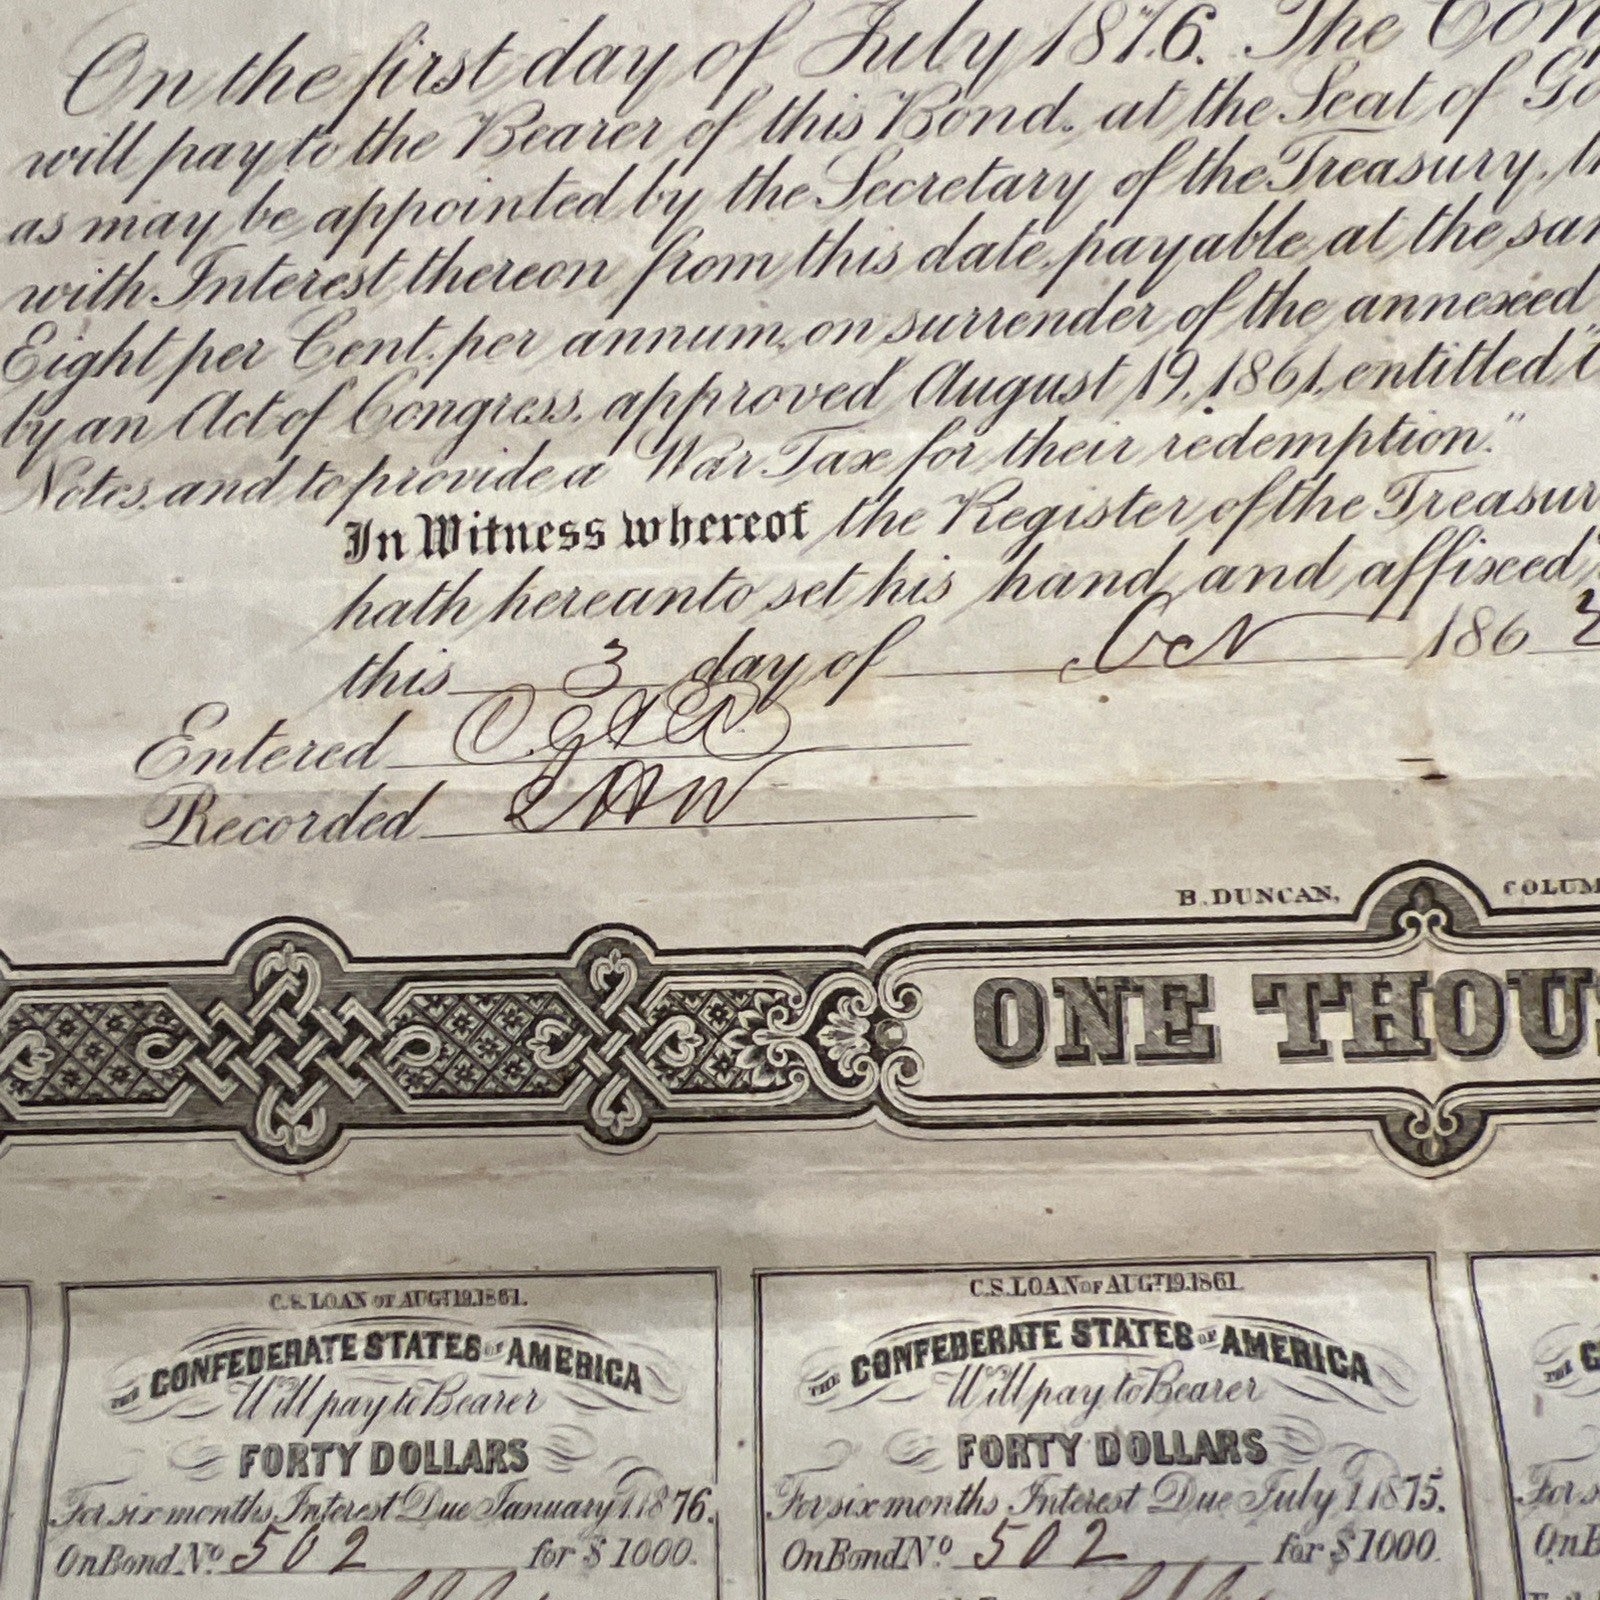 On the first day of July 1876. The Con
will pay to the Bearer of this Bond, at the Seat of Go
as may be appointed by the Secretary of the Treasury,
with Interest thereon from this date, payable at the sa
Eight per Cent. per annum, on surrender of the annexed
by an Act of Congress, approved August 19, 1861, entitled
Notes, and to provide a War Tax for their redemption."
In Witness whereof the Register of the Treasur
hath hereunto set his hand and affixed
this 3 day of Oct 186
Entered
Recorded
B. DUNCAN, COLUM
ONE THOU
C.S. LOAN OF AUGT 19. 1861.
THE CONFEDERATE STATES OF AMERICA
Will pay to Bearer
FORTY DOLLARS
For six months Interest Due January 1. 1876.
On Bond No. 502 for $1000.
C.S. LOAN OF AUGT 19. 1861.
THE CONFEDERATE STATES OF AMERICA
Will pay to Bearer
FORTY DOLLARS
For six months Interest Due July 1 1875.
On Bond No. 502 for $1000.
THE C
For s
On B